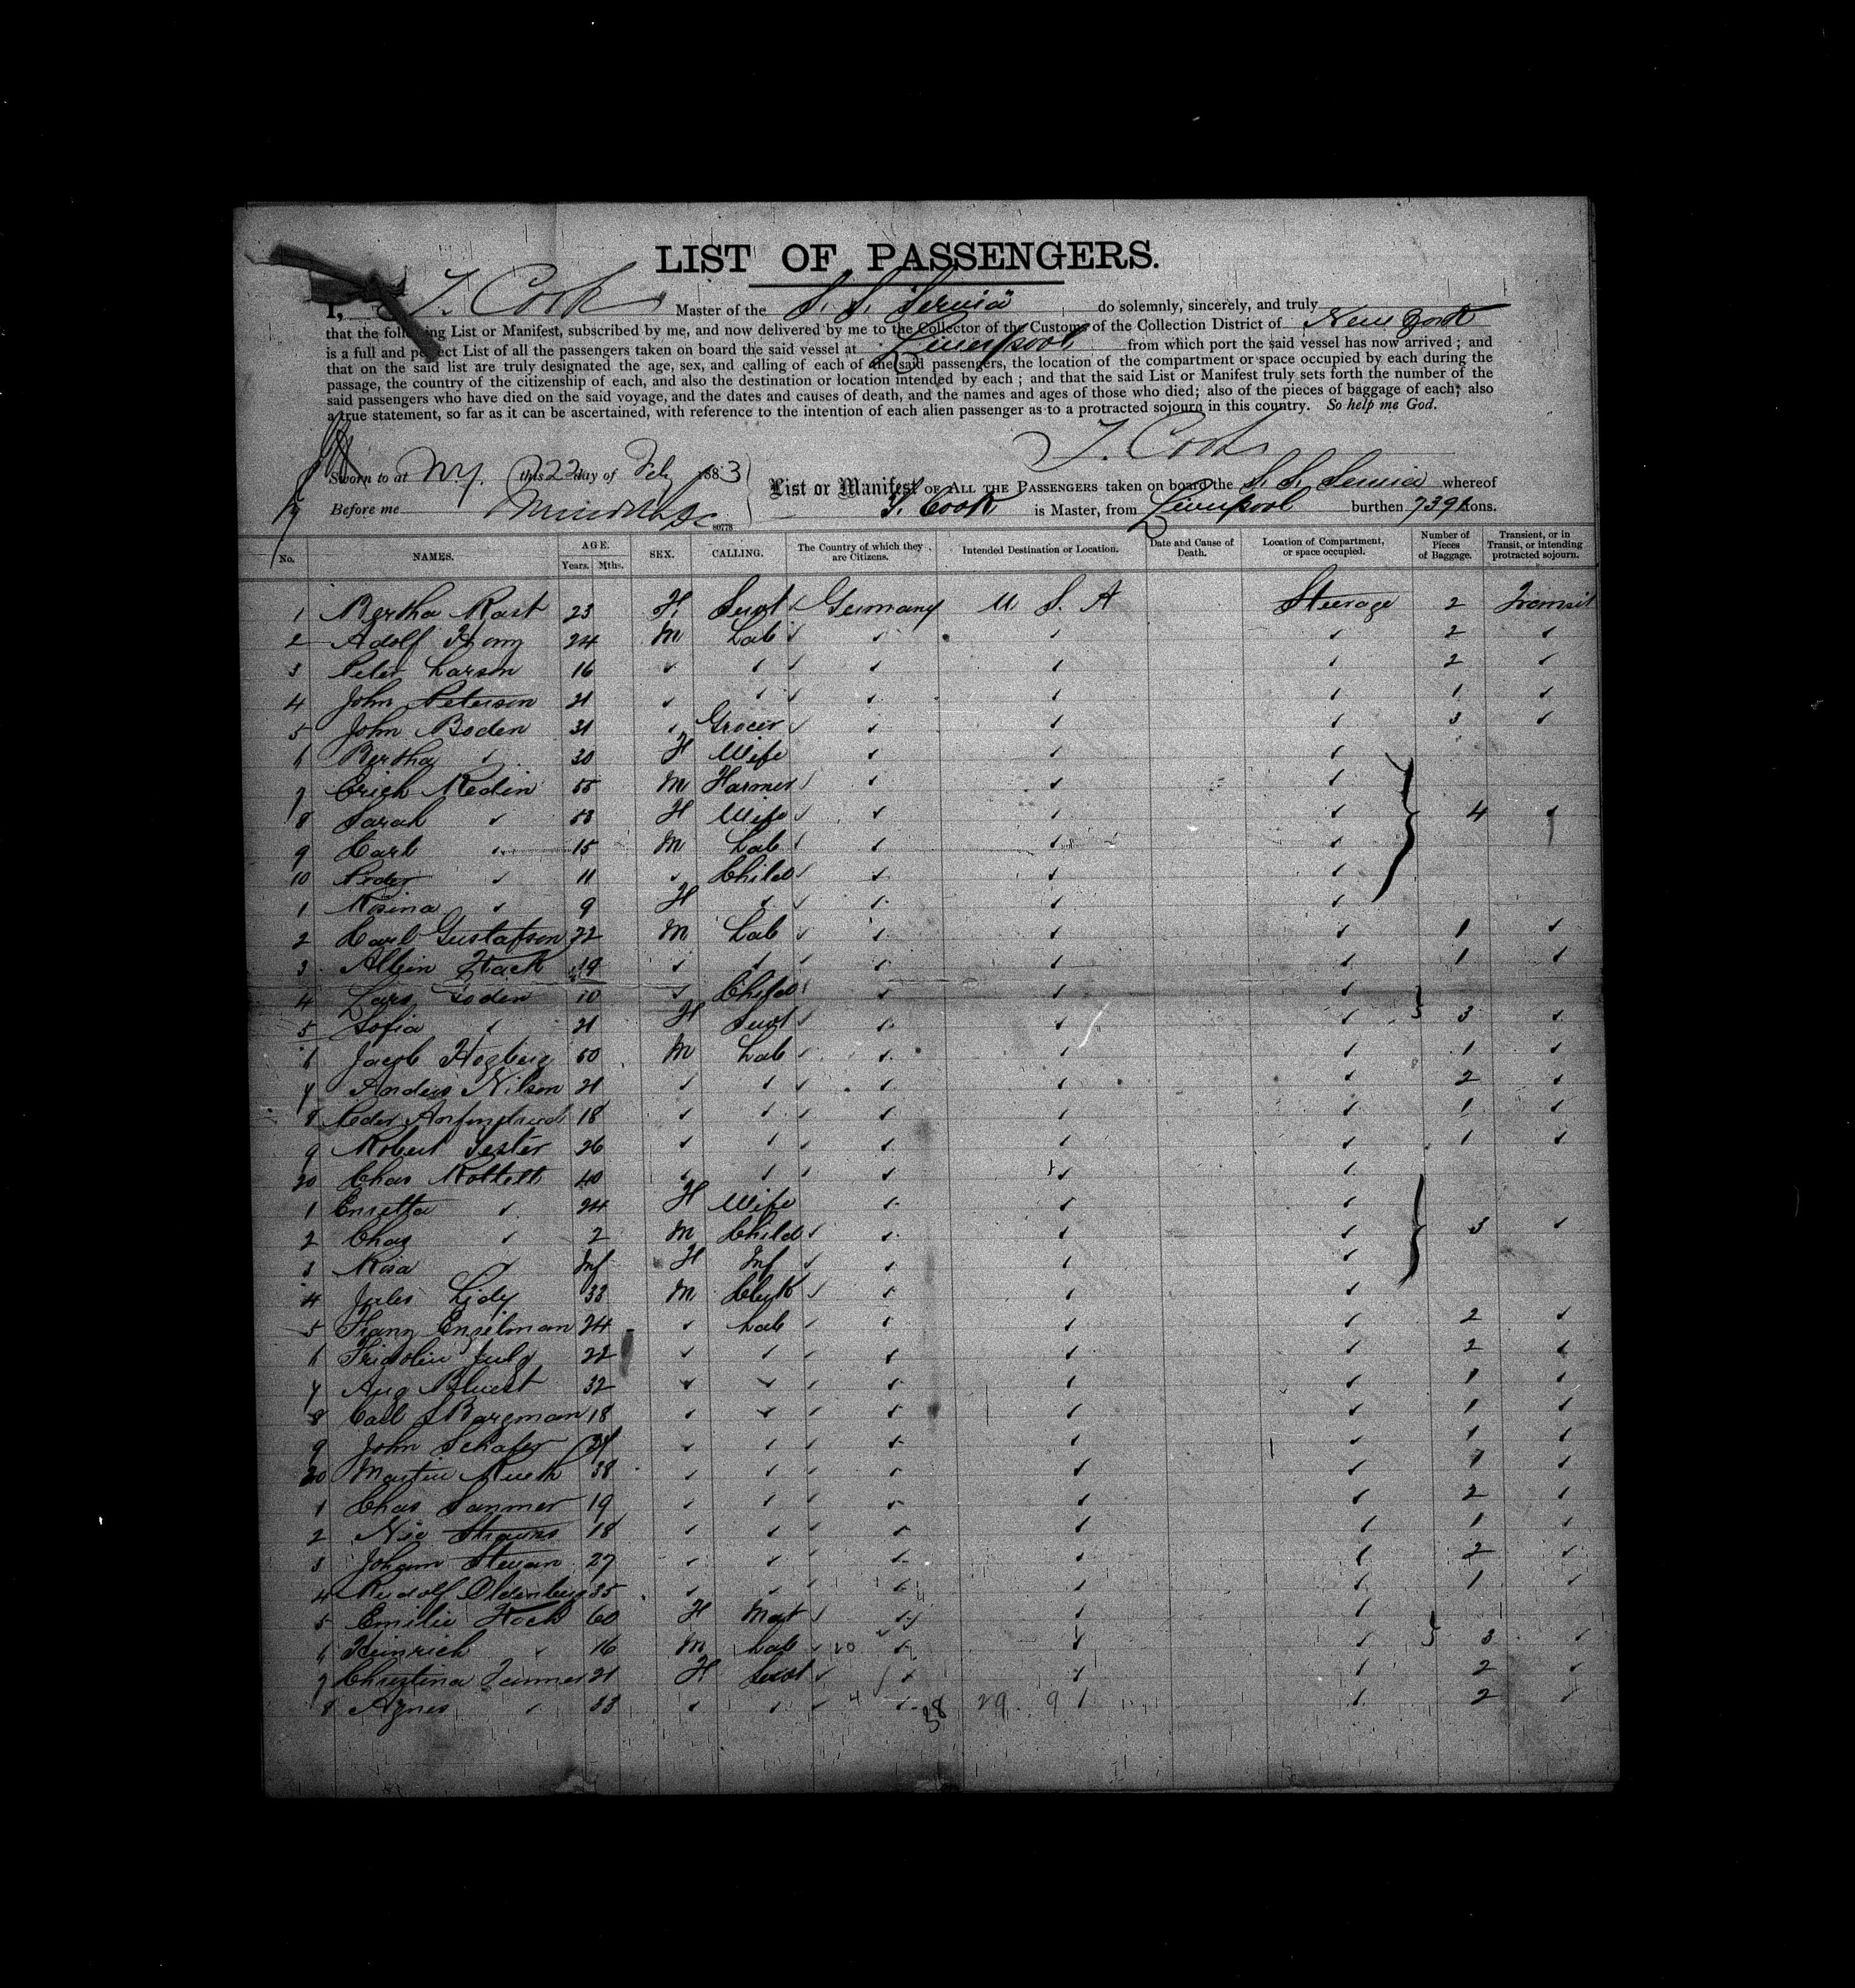 LIST OF PASSENGERS.
I, T. Cook Master of the S. S. Servia do solemnly, sincerely, and truly
that the following List or Manifest, subscribed by me, and now delivered by me to the Collector of the Customs of the Collection District of New York
is a full and perfect List of all the passengers taken on board the said vessel at Liverpool from which port the said vessel has now arrived; and
that on the said list are truly designated the age, sex, and calling of each of the said passengers, the location of the compartment or space occupied by each during the
passage, the country of the citizenship of each, and also the destination or location intended by each; and that the said List or Manifest truly sets forth the number of the
said passengers who have died on the said voyage, and the dates and causes of death, and the names and ages of those who died; also of the pieces of baggage of each; also
a true statement, so far as it can be ascertained, with reference to the intention of each alien passenger as to a protracted sojourn in this country. So help me God.
T. Cook
Sworn to at N.Y. this 22 day of Feby 1883
List or Manifest OF ALL THE PASSENGERS taken on board the S. S. Servia whereof
Before me
T. Cook is Master, from Liverpool burthen 7392 tons.
No. NAMES. AGE. Years. Mths. SEX. CALLING. The Country of which they are Citizens. Intended Destination or Location. Date and Cause of Death. Location of Compartment, or space occupied. Number of Pieces of Baggage. Transient, or in Transit, or intending protracted sojourn.
1 Bertha Rast 23 F. Servt Germany U S. A Steerage 2 Transit
2 Adolf 24 M Lab ✓ ✓ ✓ ✓ 2 ✓
3 Peter Larson 16 ✓ ✓ ✓ ✓ ✓ ✓ 2 ✓
4 John Peterson 21 ✓ ✓ ✓ ✓ ✓ ✓ 1 ✓
5 John Boden 31 ✓ Grocer ✓ ✓ ✓ ✓ 3 ✓
6 Bertha ✓ 30 F Wife ✓ ✓ ✓
7 Erich Medin 55 M Farmer ✓ ✓ ✓ ✓
8 Sarah ✓ 53 F Wife ✓ ✓ ✓ ✓ 4 ✓
9 Carl ✓ 15 M Lab ✓ ✓ ✓ ✓
10 Peder ✓ 11 ✓ Child ✓ ✓ ✓ ✓
1 Rosina ✓ 9 F ✓ ✓ ✓ ✓ ✓
2 Carl Gustafson 22 M Lab ✓ ✓ ✓ ✓ 1 ✓
3 Albin 19 ✓ ✓ ✓ ✓ ✓ ✓ 1 ✓
4 Lars 10 ✓ Child ✓ ✓ ✓ ✓
5 Sofia ✓ 21 F Servt ✓ ✓ ✓ ✓ 3 ✓
6 Jacob Hogberg 50 M Lab ✓ ✓ ✓ ✓ 1 ✓
7 Anders Nilson 21 ✓ ✓ ✓ ✓ ✓ ✓ 2 ✓
8 Peder 18 ✓ ✓ ✓ ✓ ✓ ✓ 1 ✓
9 Robert Sester 26 ✓ ✓ ✓ ✓ ✓ 1 ✓
20 Chas Rottett 40 ✓ ✓ ✓ ✓ ✓ ✓
1 Ensetta ✓ 24 F Wife ✓ ✓ ✓
2 Chas ✓ 2 M Child ✓ ✓ ✓ ✓ 3 ✓
3 Rosa ✓ Inf F Inf ✓ ✓ ✓ ✓
4 Jules Lidy 33 M Clerk ✓ ✓ ✓ ✓
5 Franz Engelman 24 ✓ Lab ✓ ✓ ✓ ✓ 2 ✓
6 Fridolin 22 ✓ ✓ ✓ ✓ ✓ ✓ 2 ✓
7 Aug 32 ✓ ✓ ✓ ✓ ✓ ✓ 1 ✓
8 Carl Bargman 18 ✓ ✓ ✓ ✓ ✓ ✓ 1 ✓
9 John Schafer ✓ ✓ ✓ ✓ ✓ ✓ 1 ✓
30 Martin Rueth 38 ✓ ✓ ✓ ✓ ✓ ✓ 1 ✓
1 Chas Sanmer 19 ✓ ✓ ✓ ✓ ✓ ✓ 2 ✓
2 Nic Strauss 18 ✓ ✓ ✓ ✓ ✓ ✓ 1 ✓
3 Johann Stevan 27 ✓ ✓ ✓ ✓ ✓ ✓ 2 ✓
4 Rudolf Oldenburg 35 ✓ ✓ ✓ ✓ ✓ ✓ 1 ✓
5 Emilie Hock 60 F Mat ✓ ✓ ✓ ✓
6 Heinrich ✓ 16 M Lab ✓ 20 ✓ ✓ ✓ 3 ✓
7 Christina 21 F Servt ✓ ✓ ✓ ✓ 2 ✓
8 Agnes ✓ 33 ✓ ✓ ✓ 4 ✓ 38 29 9 ✓ ✓ 2 ✓